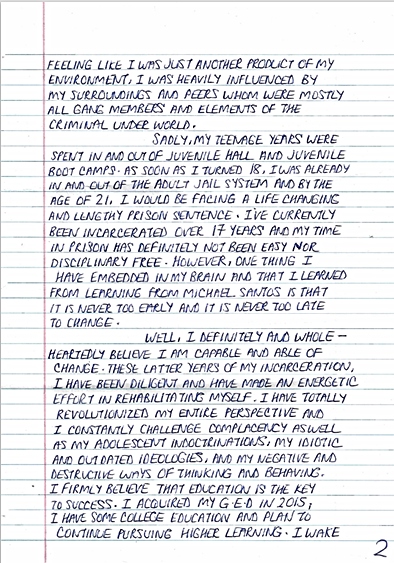 FEELING LIKE I WAS JUST ANOTHER PRODUCT OF MY
ENVIRONMENT, I WAS HEAVILY INFLUENCED BY
MY SURROUNDINGS AND PEERS WHOM WERE MOSTLY
ALL GANG MEMBERS AND ELEMENTS OF THE
CRIMINAL UNDER WORLD.
SADLY, MY TEENAGE YEARS WERE
SPENT IN AND OUT OF JUVENILE HALL AND JUVENILE
BOOT CAMPS. AS SOON AS I TURNED 18, I WAS ALREADY
IN AND OUT OF THE ADULT JAIL SYSTEM AND BY THE
AGE OF 21, I WOULD BE FACING A LIFE CHANGING
AND LENGTHY PRISON SENTENCE. I'VE CURRENTLY
BEEN INCARCERATED OVER 17 YEARS AND MY TIME
IN PRISON HAS DEFINITELY NOT BEEN EASY NOR
DISCIPLINARY FREE. HOWEVER, ONE THING I
HAVE EMBEDDED IN MY BRAIN AND THAT I LEARNED
FROM LEARNING FROM MICHAEL SANTOS IS THAT
IT IS NEVER TOO EARLY AND IT IS NEVER TOO LATE
TO CHANGE.
WELL, I DEFINITELY AND WHOLE-
HEARTEDLY BELIEVE I AM CAPABLE AND ABLE OF
CHANGE. THESE LATTER YEARS OF MY INCARCERATION,
I HAVE BEEN DILIGENT AND HAVE MADE AN ENERGETIC
EFFORT IN REHABILITATING MYSELF. I HAVE TOTALLY
REVOLUTIONIZED MY ENTIRE PERSPECTIVE AND
I CONSTANTLY CHALLENGE COMPLACENCY ASWELL
AS MY ADOLESCENT INDOCTRINATIONS, MY IDIOTIC
AND OUTDATED IDEOLOGIES, AND MY NEGATIVE AND
DESTRUCTIVE WAYS OF THINKING AND BEHAVING.
I FIRMLY BELIEVE THAT EDUCATION IS THE KEY
TO SUCCESS. I ACQUIRED MY G.E.D IN 2015,
I HAVE SOME COLLEGE EDUCATION AND PLAN TO
CONTINUE PURSUING HIGHER LEARNING. I WAKE
2